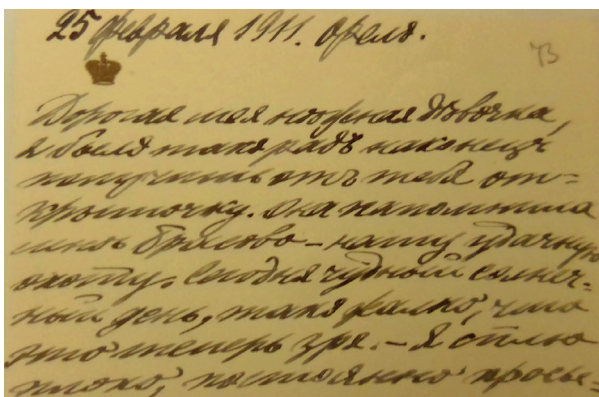 25 февраля 1911. Орелъ.
73
Дорогая моя нѣжная дѣвочка,
я былъ такъ радъ наконецъ
получить отъ тебя от=
крыточку. Она напомнила
мнѣ Брасово – нашу удачную
охоту. Сегодня чудный солнеч=
ный день, такъ жалко, что
это теперь зря. – Я сплю
плохо, постоянно просы=